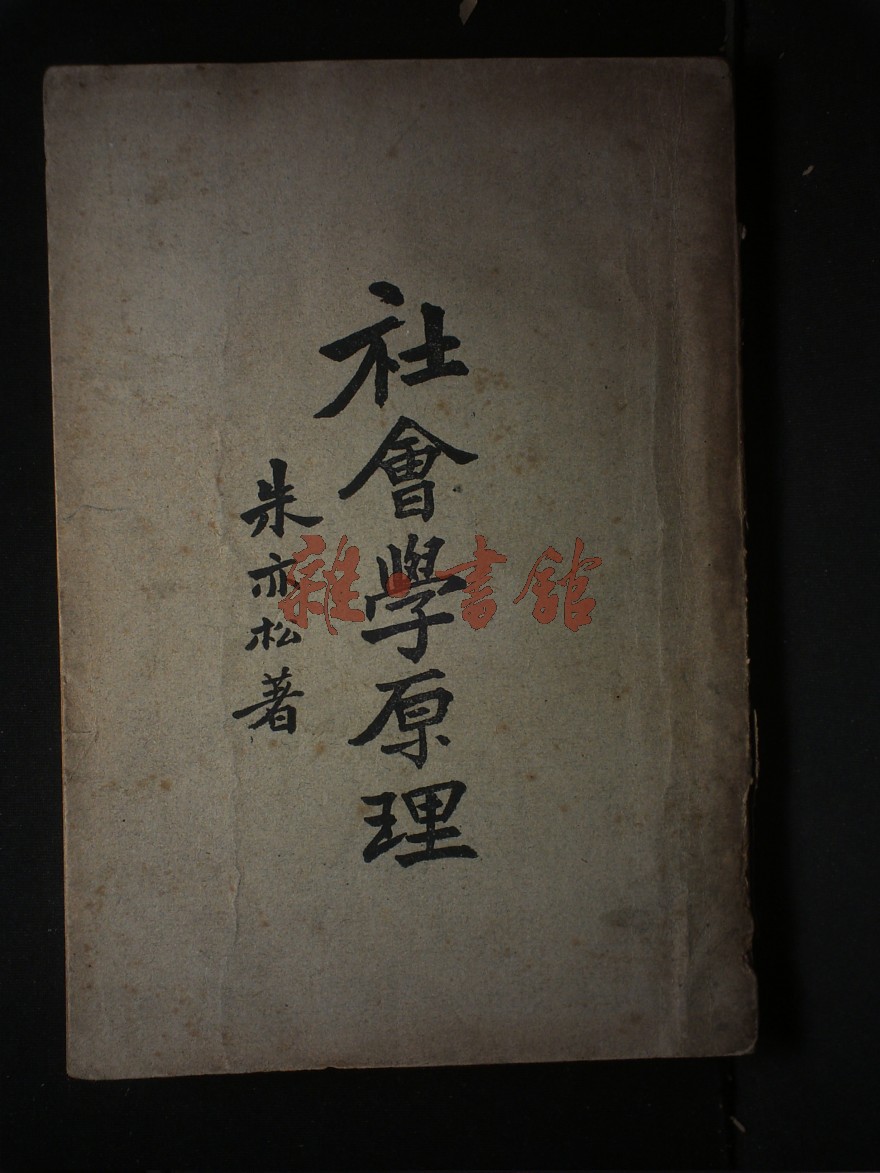 社會學原理
朱亦松著
雜·書館